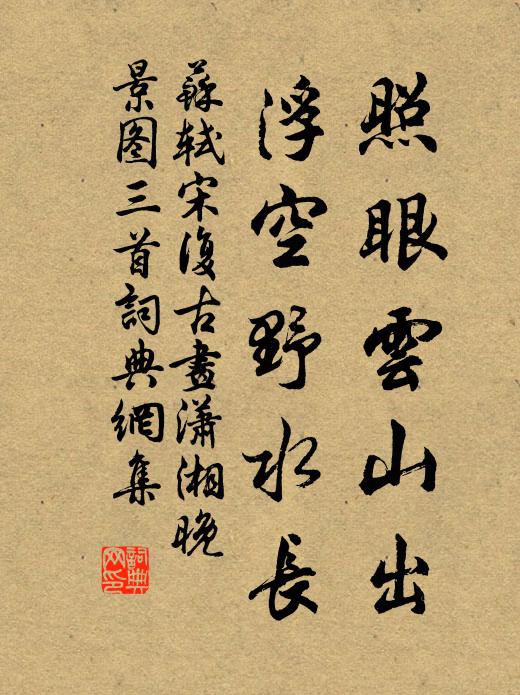 照眼雲山出
浮空野水長
蘇軾宋復古畫瀟湘晚
景图三首詞典網集
詞典
网印